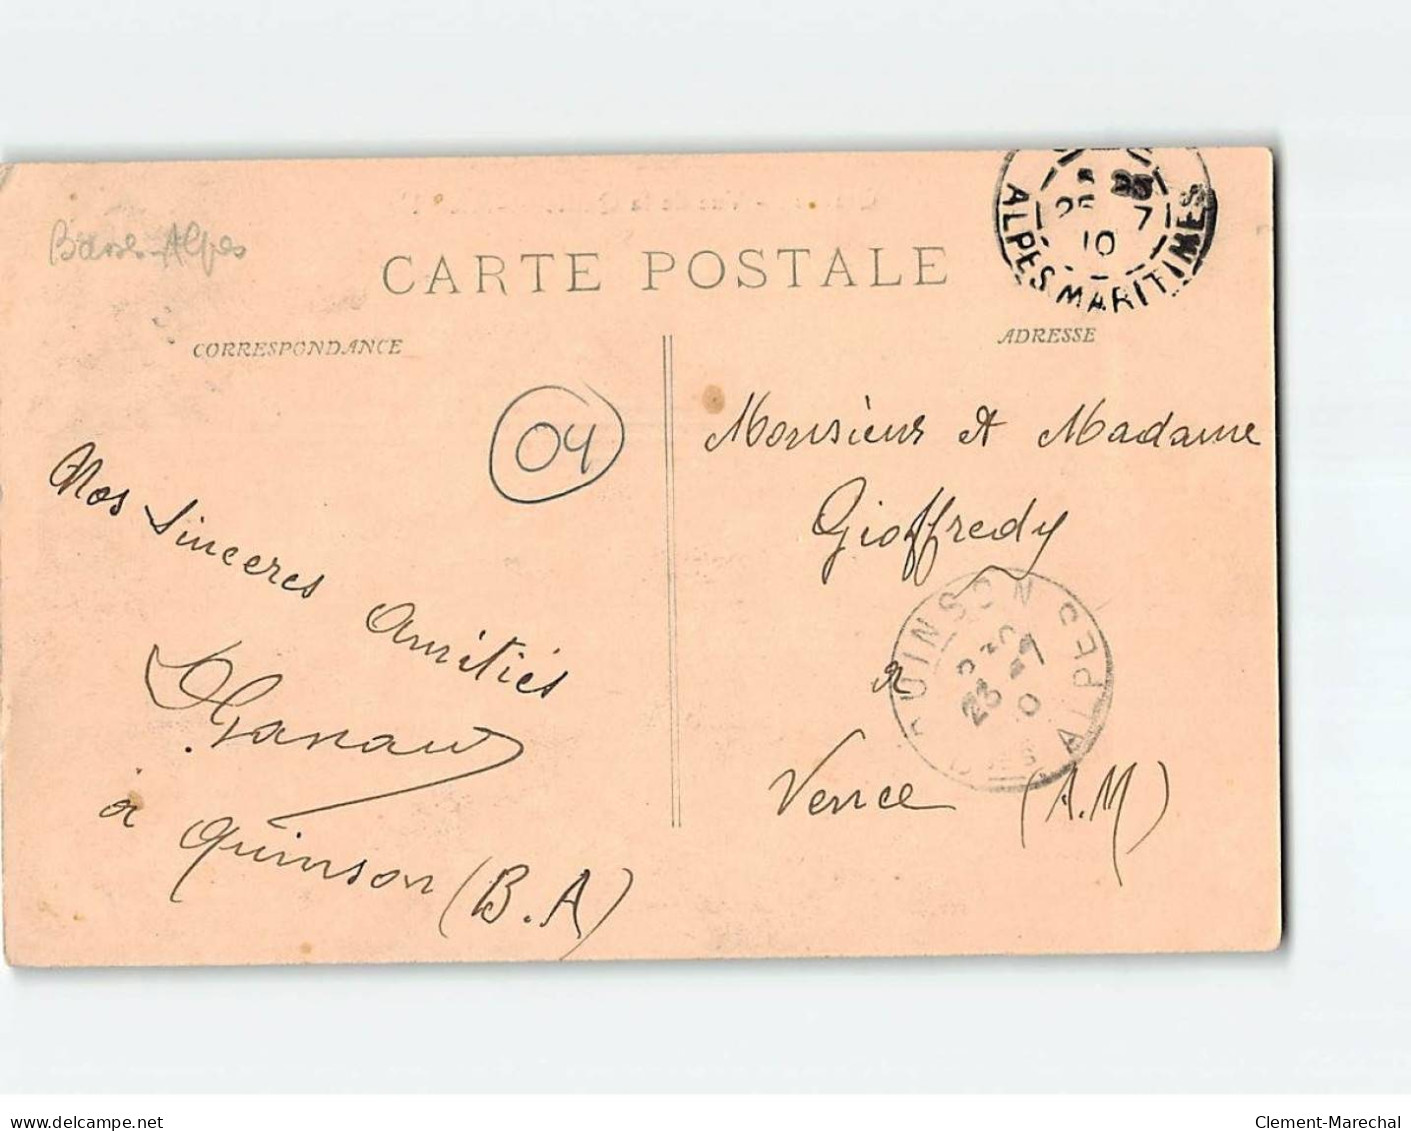 Basses-Alpes
CARTE POSTALE
ALPES MARITIMES
25 7
10
CORRESPONDANCE
ADRESSE
04
Nos sincères amitiés
à Quinson (B.A)
Monsieur et Madame
Gioffredy
à
Vence (A.M)
QUINSON
23 -7
10
BSES ALPES
www.delcampe.net
Clement-Marechal